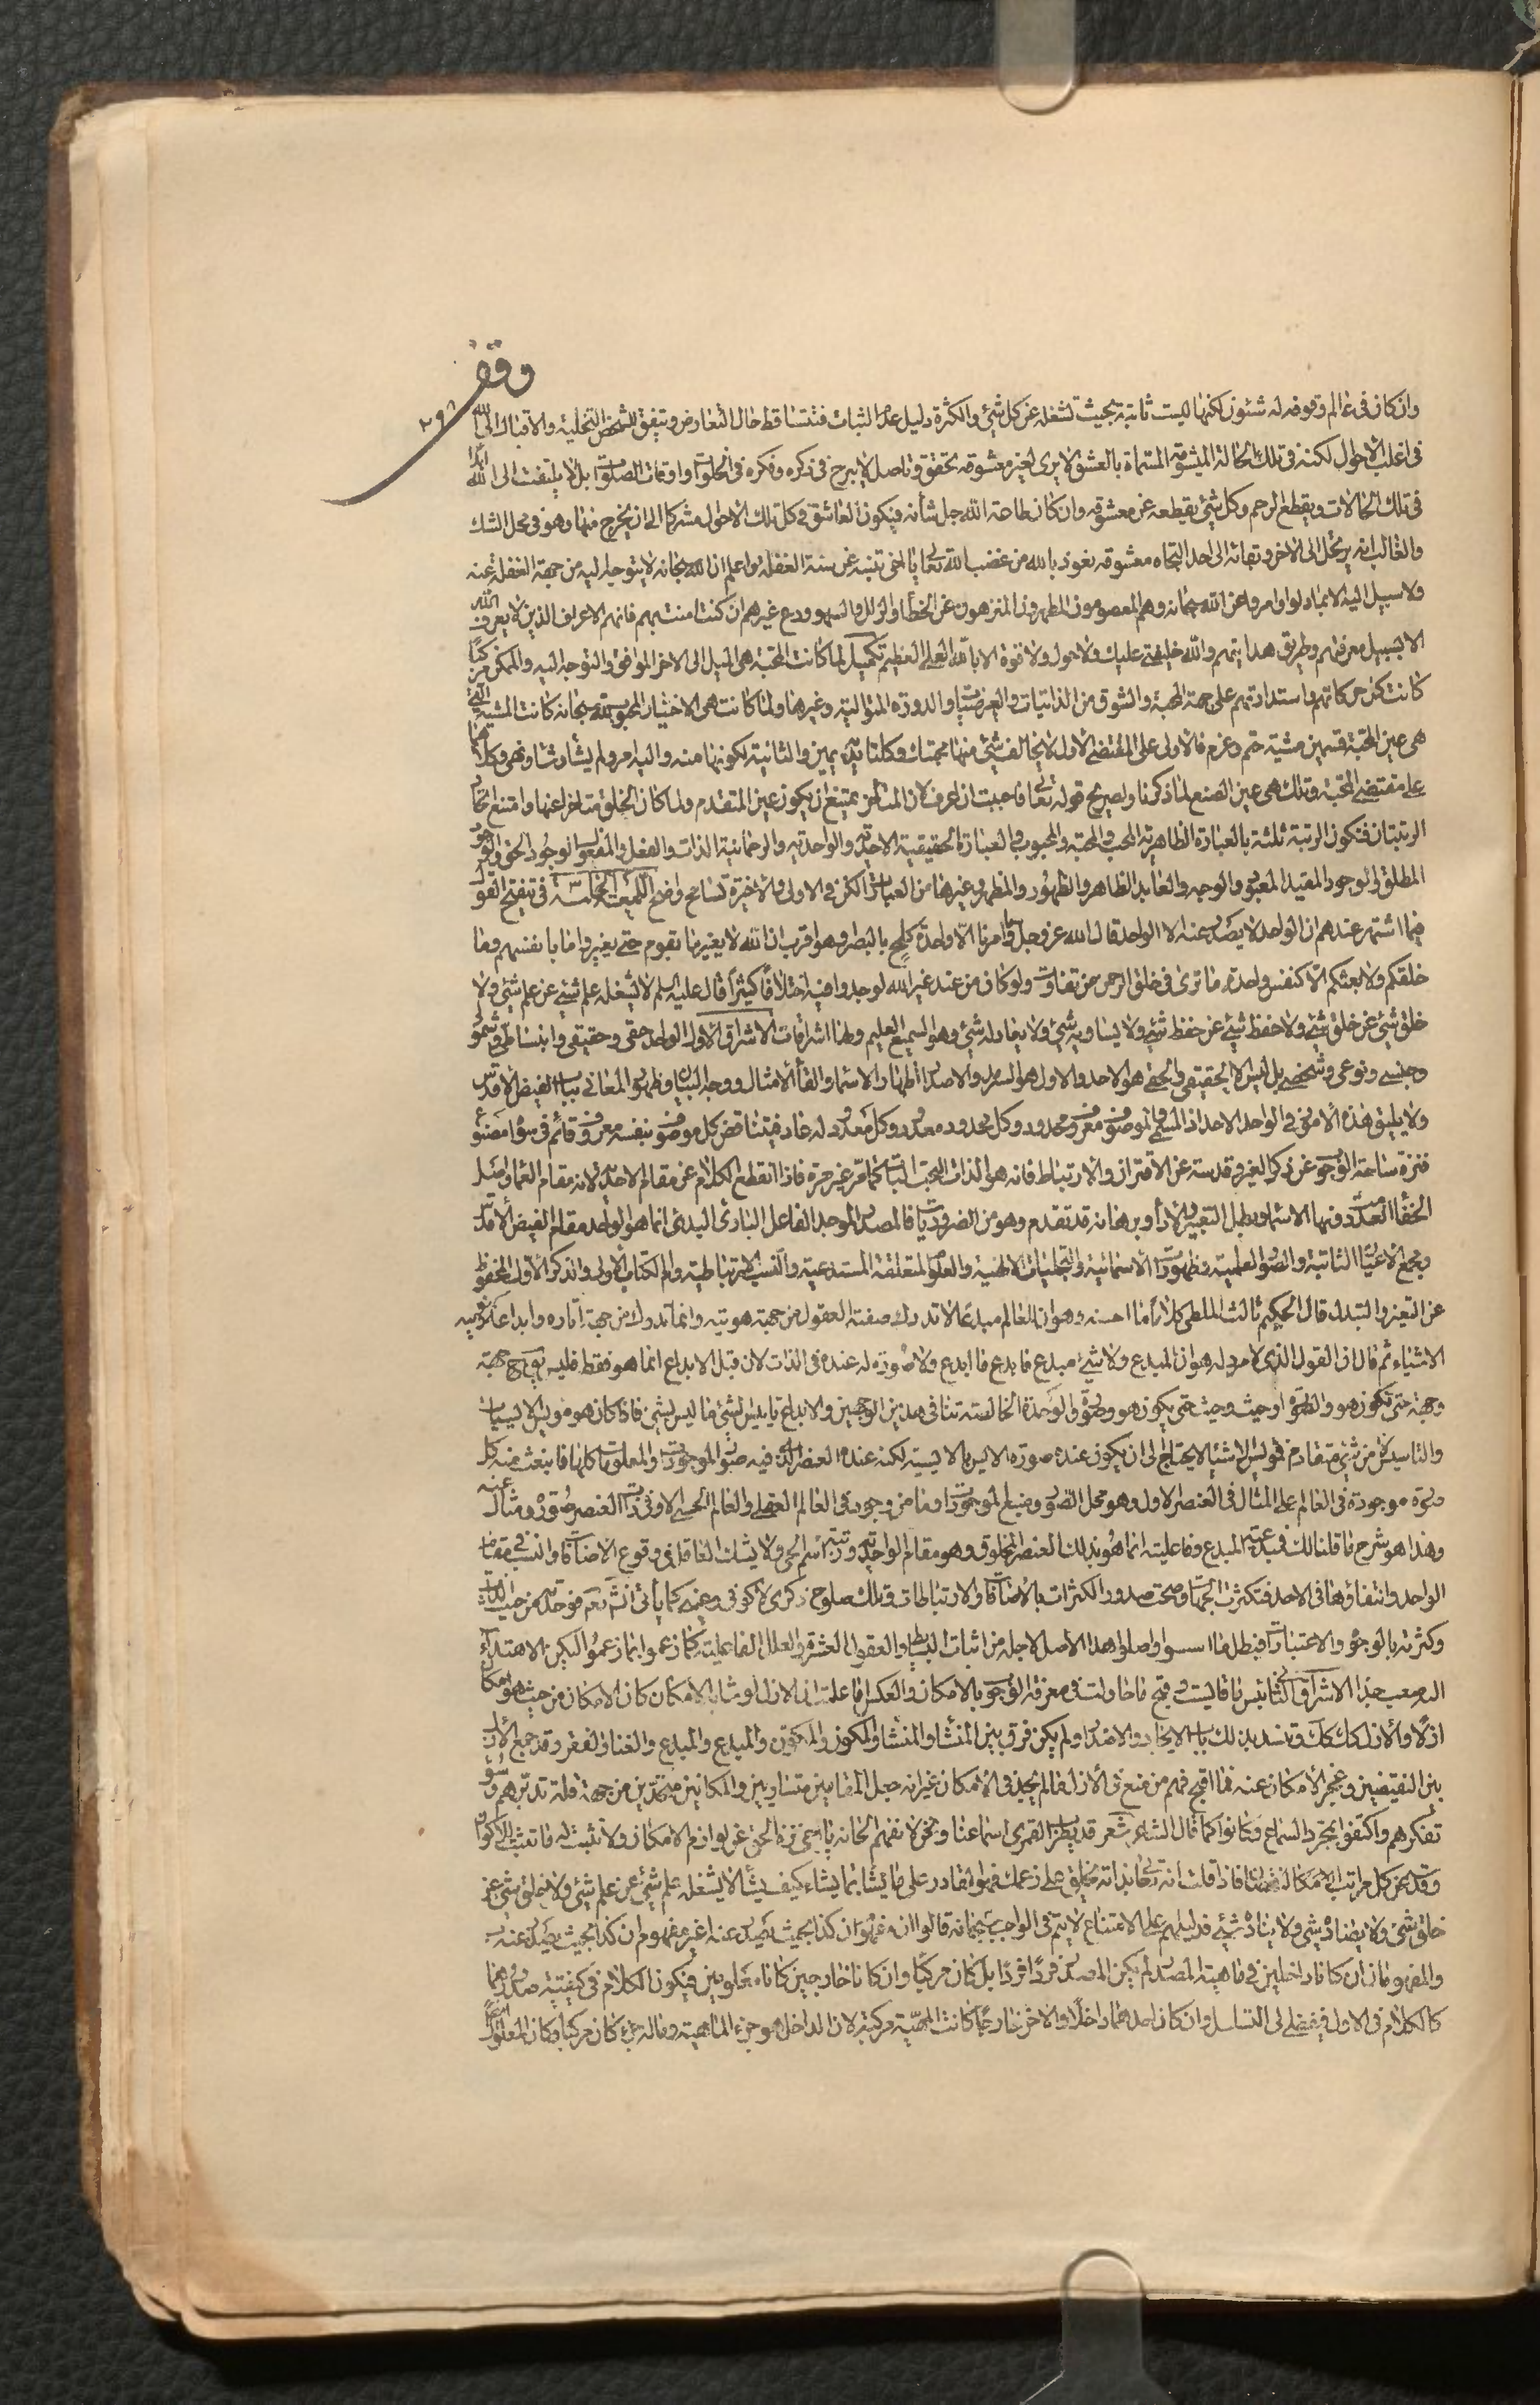 وقف
٢٩٨
وان كان فى عالم وقوفه له شئون لكنها ليست ثابتة بحيث تشغله عن كل شئ والكثرة دليل عدم الثبات فتتساقط حال التعارض ويتفق للشخص التخلية والاقبال الى الله
فى اغلب الاحوال لكنه فى تلك الحالة المسماة بالعشق لا يرى لغير معشوقه تحقق وتاصل لا يبرح فى ذكره وفكره فى الخلوات واوقات الصلوات بل لا يلتفت الى الله ابدا
فى تلك الحالات ويقطع الرحم وكل شئ يقطعه عن معشوقه وان كان طاعة الله جل شأنه فيكون العاشق فى كل تلك الاحوال مشركا الى ان يخرج منها وهو فى محل الشك
والغالب انه يرتحل الى الاخرة ونهاية الى احد اتجاه معشوقه نعوذ بالله من غضب الله تعالى يا اخى تنبه عن سنة الغفلة واعلم ان الله سبحانه لا يتوجه اليه من جهة الغفلة عنه
ولا سبيل اليه الا بما دلوا وامروا عن الله سبحانه وهم المعصومون المطهرون المنزهون عن الخطأ والزلل والسهو ودع غيرهم ان كنت امنت بهم فانهم الاعراف الذين لا يعرف الله
الا بسبيل معرفتهم وطريق هدايتهم والله خليفتى عليك ولا حول ولا قوة الا بالله العلى العظيم تكميل لما كانت المحبة هى الميل الى الاخر الموافق والتوجه اليه والممكن مركبا
كانت كل حركاتهم واستدارتهم على جهة المحبة والشوق من الذاتيات والعرضيات والدورة المتوالية وغيرها ولما كانت هى الاختيار المحبوب لله سبحانه كانت المشية التى
هى عين المحبة قسمين مشية حتم وعزم فالاولى على المقتضى الاول لا يخالف شئ منها محبتك وكلتا يديه يمين والثانية لكونها منه واليه امر ولم يشأ وشاء ونهى وكلاهما
على مقتضى المحبة وتلك هى عين الصنع لما ذكرنا ولصريح قوله تعالى فاحببت ان اعرف لان المتأخر يمتنع ان يكون عين المتقدم ولما كان الخلق متاخرا عنها وامتنع اتحاد
الرتبتان فتكون الرتبة ثلثة بالعبارة الظاهرية المحب والمحبة والمحبوب وبالعبارة الحقيقية الاحدية والواحدية والرحمانية الذات والفعل والمفعول الوجود الحق والوجود
المطلق والوجود المقيد المعبود والوجه والعابد الظاهر والظهور والمظهر وغيرها من العبارات لكن فى الاولى والاخيرة تسامح واضح اللمعة الخامسة فى تنقيح القول
فيما اشتهر عندهم ان الواحد لا يصدر عنه الا الواحد قال الله عز وجل وما امرنا الا واحدة كلمح بالبصر وهو اقرب ان الله لا يغير ما بقوم حتى يغيروا ما بانفسهم وما
خلقكم ولا بعثكم الا كنفس واحدة ما ترى فى خلق الرحمن من تفاوت ولو كان من عند غير الله لوجدوا فيه اختلافا كثيرا قال عليه السلم لا يشغله علم شئ عن علم شئ ولا
خلق شئ عن خلق شئ ولا حفظ شئ عن حفظ شئ ولا يساويه شئ ولا يعادله شئ وهو السميع العليم وهنا اشراقات الاشراق الاول الواحد حقى وحقيقى وانبساطى وشمولى
وجنسى ونوعى وشخصى بل ليس الا الحقيقى والحقى هو الاحد والاول هو السرمد والاصل اظهار الاسماء والقاء الامثال ووجه البيان وظهور المعانى بباب الفيض الاقدس
ولا يليق هذه الامور فى الواحد الاحد اذ المسمى والموصوف معروف ومحدود وكل محدود معدود وكل معدود له عاد فيتناقض كل موصوف بنفسه معروف وقائم فى سواه مصنوع
فنزه ساحة الوجوب عن ذكر الغير وقدسه عن الاقتران والارتباط فانه هو الذات البحت البات كما مر غير مرة فاذا انقطع الكلام عن مقام الاحدية لانه مقام العماء واصل
الخفاء المعدود فيها الاسماء وبطل التعبير والاداء وبرهانه قد تقدم وهو من الضروريات فالمصدر الموجد الفاعل البارئ البدئ انما هو الواحد مقام الفيض الاقدس
ومجمع الاعيان الثابتة والصور العلمية وظهورات الاسمائية والتجليات الالهية والعلوم المتعلقة المستدعية والنسب الارتباطية وام الكتاب الاولى والذكر الاول المحفوظ
عن التغير والتبدل قال الحكيم ثالث الملطى كلاما ما احسنه وهو ان للعالم مبدعا لا تدرك صفته العقول من جهة هويته وانما تدرك من جهة آثاره وابداعه وتكوينه
الاشياء ثم قال ان القول الذى لا مرد له هو ان المبدع ولا شئ مبدع فابدع ما ابدع ولا صورة له عنده فى الذات لان قبل الابداع انما هو فقط فليس يقال ح جهة
وجهة حتى يكون هو والصورة او حيث وحيث حتى يكون هو وصورة والوحدة الخالصة تنافى هذين الوجهين والابداع تاييس لشئ ما ليس بشئ فاذا كان هو مؤيس الايسيات
والتاييس لا من شئ متقادم فمؤيس الاشياء لا يحتاج الى ان يكون عنده صورة الايس بالايسية لكنه عنده العنصر الذى فيه صور الموجودات والمعلومات كلها فانبعث منه كل
صورة موجودة فى العالم على المثال فى العنصر الاول وهو محل الصور ومنبع الموجودات وما من موجود فى العالم العقلى والعالم الحسى الا وفى ذات العنصر صورة ومثال عنه
وهذا هو شرح ما قلنا لك فمبدعية المبدع وفاعليته انما هو بذلك العنصر المخلوق وهو مقام الواحدية ورتبة اسم الحى ولا يشك العاقل فى وقوع الاضافات والنسب فى مقام
الواحد وانتفاؤها فى الاحد فتكثرت الجهات وصحت صدور الكثرات بالاضافات والارتباطات وتلك صلوح ذكرى لا كونى وعينى كما يأتى انشاء الله تعالى فوحدته من حيث الذات
وكثرته بالوجوه والاعتبارات فبطل ما اسسوا واصلوا هذا الاصل لاجله من اثبات البسايط والعقول العشرة والعلل الفاعلية كما زعموا بما زعموا ليكن الاهتداء
الاصعب جدا الاشراق الثانى قايست وقبح ما حاولت فى معرفة الوجوب بالامكان والعكس اما علمت ان الازل لو شابه الامكان كان الامكان من حيث هو امكان
ازلا والازل كك وقد سد بذلك باب الايجاد والاصدار ولم يكن فرق بين المنشأ والمنشأ والمكون والمكون والمبدع والمبدع والغنا والفقر وقد جمع الازل
بين النقيضين وعجز الامكان عنه فما اقبح فهم من منع فى الازل ما لم يجد فى الامكان غير انه جعل المقامين متساويين والمكانين متحدين من جهة قلة تدبرهم وسوء
تفكرهم واكتفوا بمجرد السماع وكانوا كما قال الشاعر شعر قد يطرب القمرى اسماعنا ونحن لا نفهم الحانه يا اخى نزه الحق عن لوازم الامكان ولا تثبت له ما تثبت للاكوان
وقدسه عن كل مراتب الامكان فاذا قلت انه تعالى بذاته يخلق على زعمك فهو القادر على ما يشاء بما يشاء كيف يشاء لا يشغله علم شئ عن علم شئ ولا خلق شئ عن
خلق شئ ولا يضاده شئ ولا يناده شئ فدليلهم على الامتناع لا يتم فى الواجب سبحانه قالوا ان مفهوم ان كذا بحيث يصدر عنه اغير مفهوم ان كذا بحيث يصدر عنه ب
والمفهومان ان كانا داخلين فى ماهية المصدر لم يكن المصدر فردا فردا بل كان مركبا وان كانا خارجين كانا معلولين فيكون الكلام فى كيفية صدورهما
كالكلام فى الاول فيفضى الى التسلسل وان كان احدهما داخلا والاخر خارجا كانت المهية مركبة لان الداخل هو جزء الماهية وماله جزء كان مركبا وكان المعلول ايضا